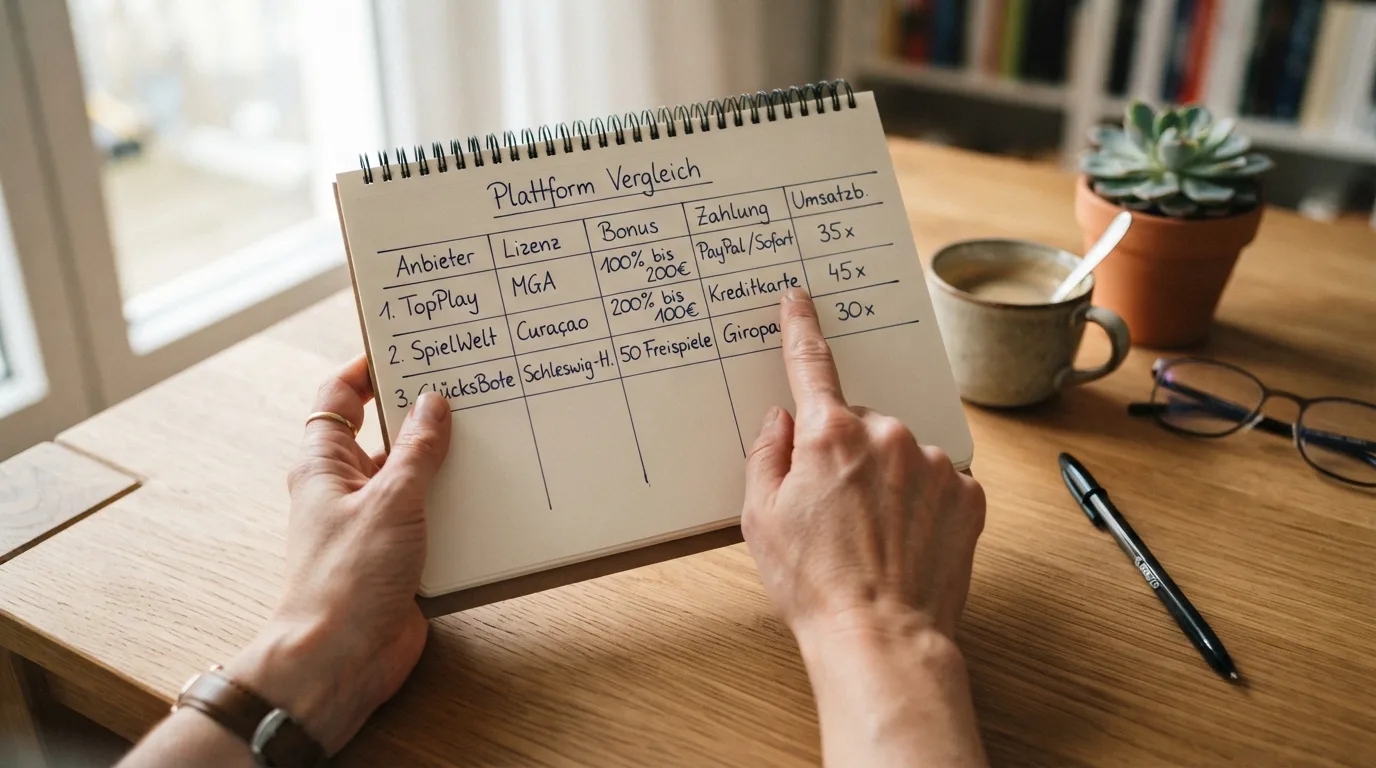 Plattform Vergleich
Anbieter Lizenz Bonus Zahlung Umsatzb.
1. TopPlay MGA 100% bis 200€ PayPal/Sofort 35x
2. SpielWelt Curaçao 200% bis 100€ Kreditkarte 45x
3. GlücksBote Schleswig-H. 50 Freispiele Giropa 30x